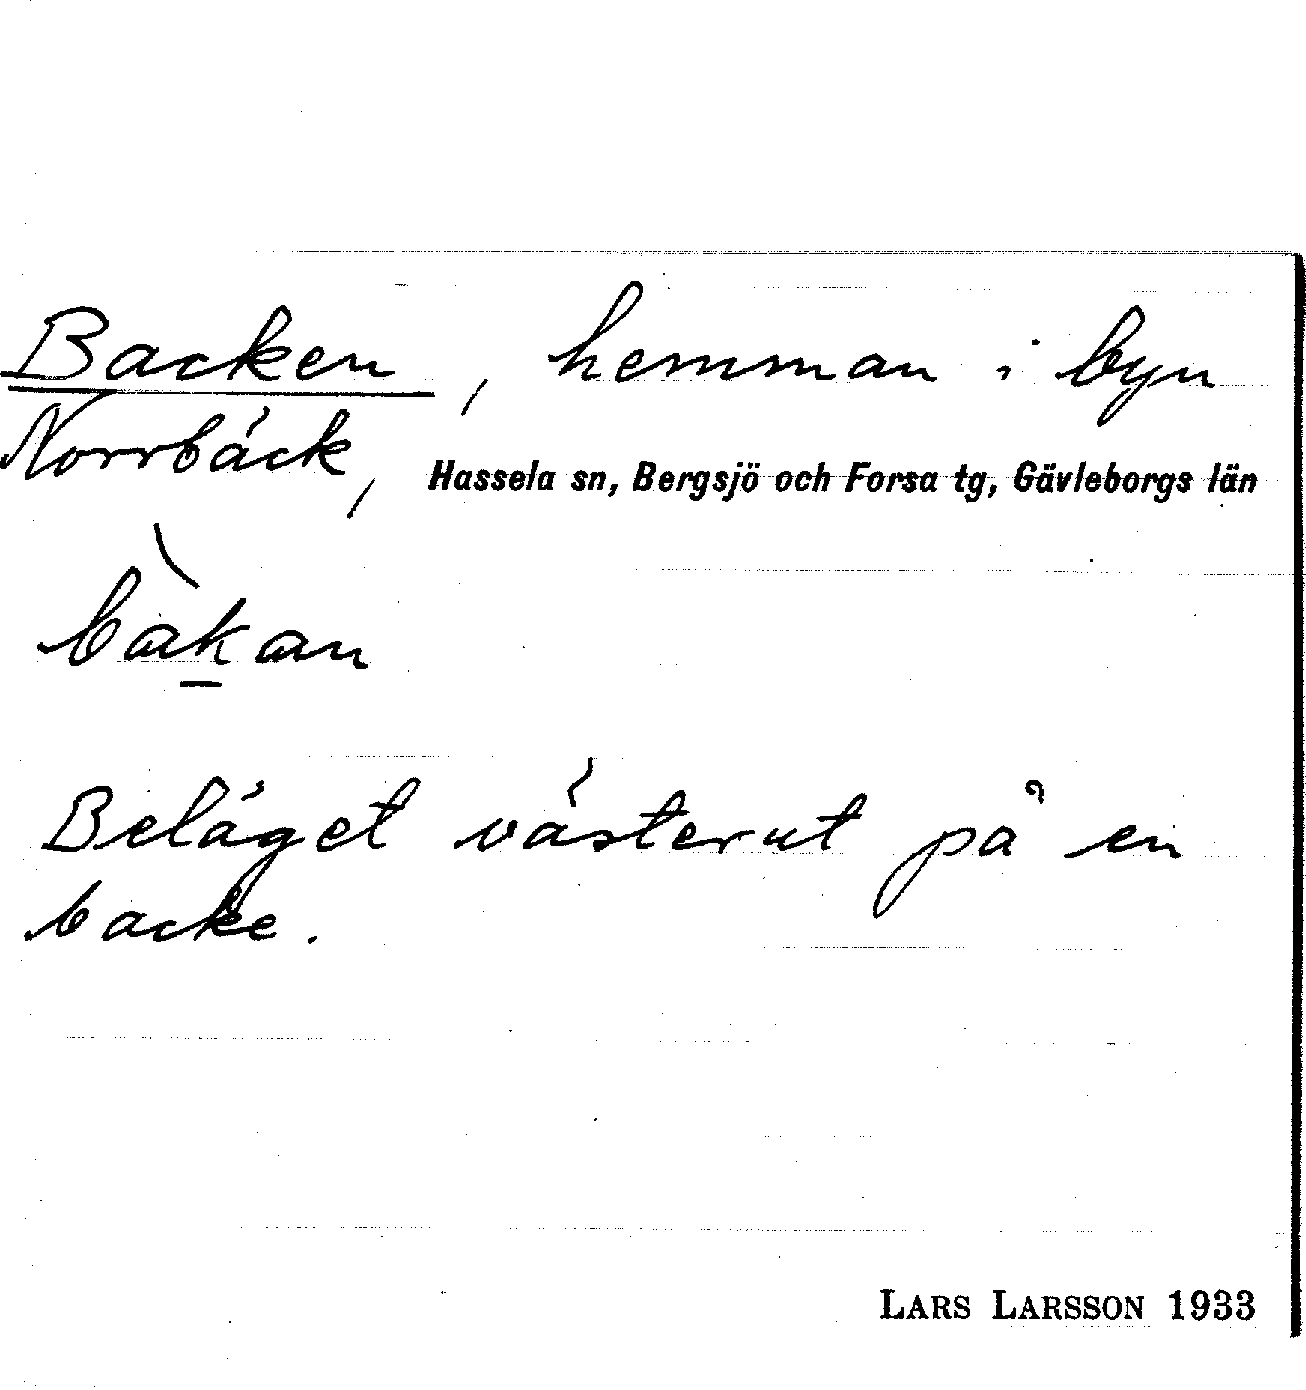 Backen, hemman i byn
Norrbäck, Hassela sn, Bergsjö och Forsa tg, Gävleborgs län
bàk̲an
Beläget västerut på en
backe.
LARS LARSSON 1933